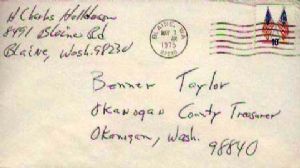 H Charles
8491 Blaine Rd
Blaine, Wash. 98230
BLAINE, WA
MAY
1975
10c
Bonner Taylor
Okanogan County Treasurer
Okanogan, Wash.
98840